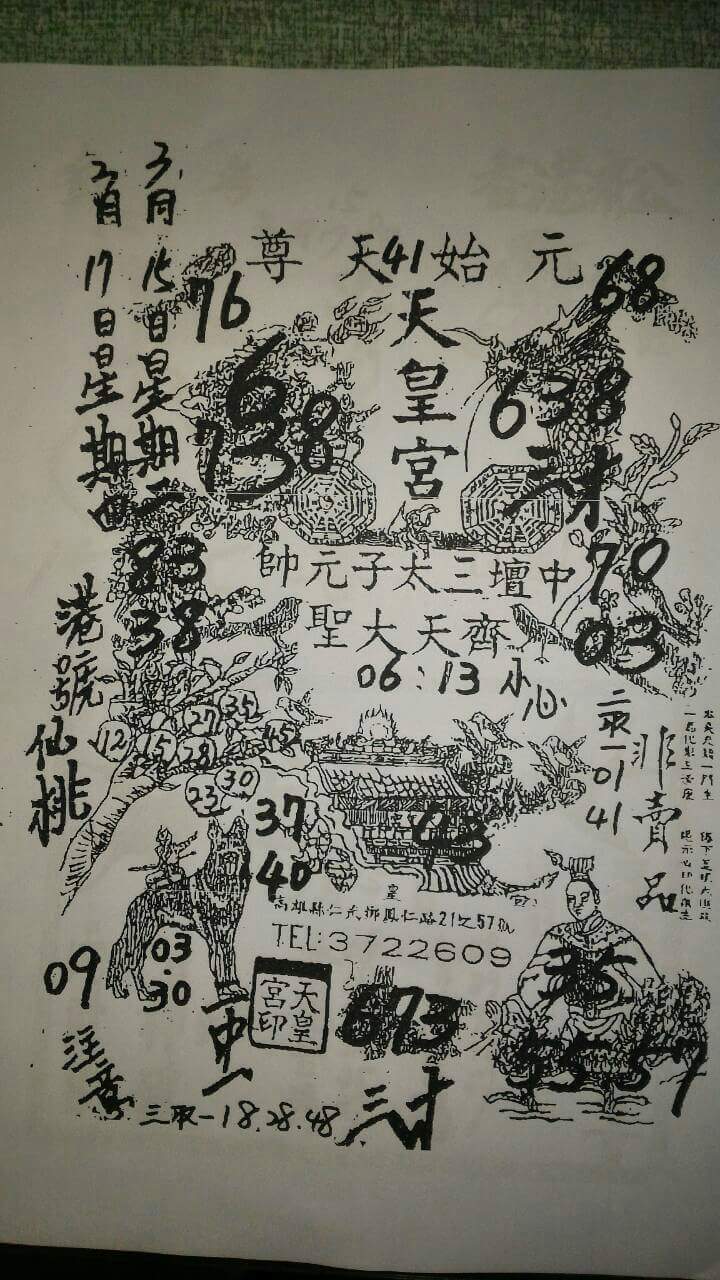 3月15日星期二
2月17日星期四
元始天尊
41
76
68
天皇宮
6
738
638
三才
中壇三太子元帥
齊天大聖
83
38
70
03
06:13 小心
港號仙桃
12 15 27 28 35 45 23 30
二取一 01 41
非賣品
37
40
43
高雄縣仁武鄉鳳仁路21之57號
TEL:3722609
03.30
09
注意
一中一
天皇宮印
673
三才
35
55 57
三取一 18.28.48